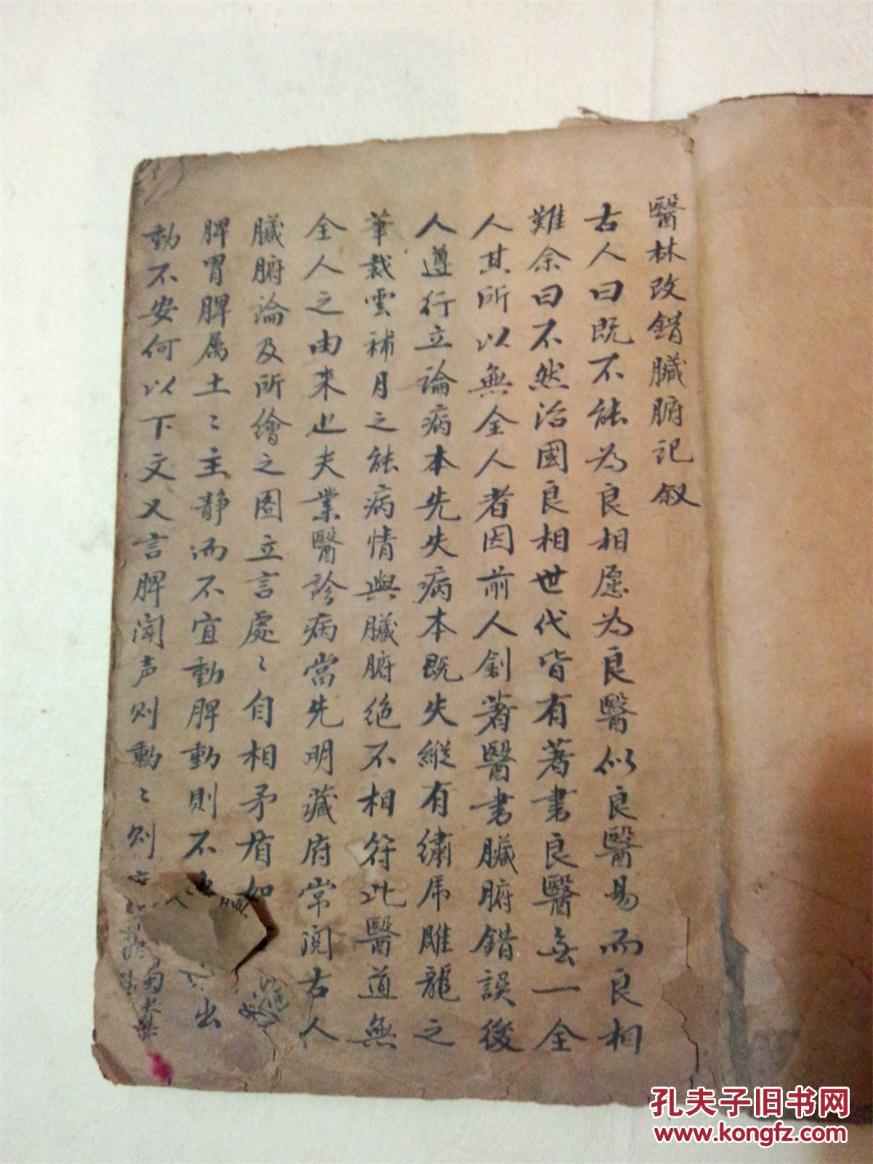 醫林改錯臟腑記叙
古人曰既不能为良相愿为良醫似良醫易而良相
難余曰不然治國良相世代皆有著書良醫無一全
人其所以無全人者因前人創著醫書臟腑錯誤後
人遵行立論病本先失病本既失縱有繡虎雕龍之
筆裁雲補月之能病情與臟腑絶不相符此醫道無
全人之由来也夫業醫診病當先明臓府常閲古人
臟腑論及所繪之圖立言處〻自相矛盾如
脾胃脾属土〻主静而不宜動脾動則不 出
動不安何以下文又言脾闻声则動〻则
孔夫子旧书网
www.kongfz.com